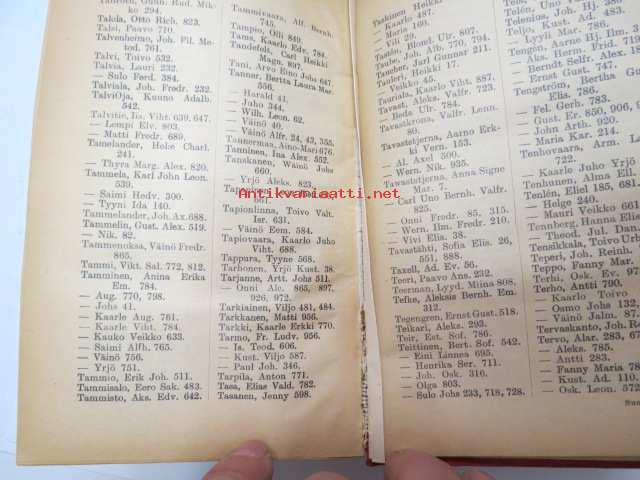 Tanroth, Gunn. Rud. Mik-
ko 294.
Talola, Otto Rich. 823.
Talsi, Paavo 710.
Talvenheimo, Joh. Fil. Me-
tod. 761.
Talvi, Toivo 532.
Talvia, Lauri 232.
— Sulo Ferd. 384.
Talviala, Joh. Fredr. 232.
TalviOja, Kuuno Adalb.
542.
Talvitie, Iis. Viht. 639, 647.
— Lempi Elv. 803.
— Matti Fredr. 689.
Tamelander, Helge Charl.
241.
— Thyra Marg. Alex. 820.
Tammela, Karl John Leon.
539.
— Saimi Hedv. 300.
— Tyyni Ida 140.
Tammelander, Joh. Ax. 688.
Tammelin, Gust. Alex. 519.
— Nik. 82.
Tammenoksa, Väinö Fredr.
865.
Tammi, Vikt. Sal. 772, 812.
Tamminen, Anina Erika
Em. 784.
— Aug. 770, 798.
— Johs 41.
— Kaarle Aug. 761.
— Kaarle Viht. 784.
— Kauko Veikko 633.
— Saimi Alfh. 765.
— Väinö 756.
— Yrjö 751.
Tammio, Erik Joh. 511.
Tammisalo, Eero Sak. 483.
Tammisto, Aks. Edv. 642.
Tammivaara, Alf. Bernh.
745.
Tampo, Olli 849.
Tanus, Kaarlo Edv. 784.
Tandefelt, Carl Heikki
Magn. 897.
Tani, Arvo Eino Johs 647.
Tanner, Bertta Laura Mar.
556.
— Harald 41.
— Juho 344.
— Wilh. Leon. 62.
— Väinö 40.
— Väinö Alfr. 24, 43, 355.
Tannermaa, Aino-Mari 676.
Tanninen, Ina Alex. 552.
Tanskanen, Wäinö Johs
660.
— Yrjö Aleks. 823.
661.
Tapionlinna, Toivo Valt.
Isr. 631.
— Väinö Eem. 584.
Tapiovaara, Kaarlo Juho
Viht. 688.
Tappura, Tyyne 568.
Tarhonen, Yrjö Kust. 38.
Tarjanne, Artt. Johs 511.
— Onni Ale. 865, 897,
926, 972.
Tarkiainen, Viljo 481, 484.
Tarkkanen, Matti 956.
Tarkki, Kaarle Erkki 770.
Tarmo, Fr. Ludv. 956.
— Is. Teod. 606.
— Kust. Viljo 587.
— Paul Joh. 346.
Tarpila, Anton 771.
Tasa, Elias Vald. 782.
Tasanen, Jenny 598.
Taskinen Heikki
— Kaarlo 487.
— Maria 160.
— Vilj. 29.
Tastie, Blond. Ulr. 807.
Taube, Joh. Alb. 770, 794.
Tauber, Jarl Gunnar 211.
Tauleri, Heikki 17.
Tauriala, Kaarlo Viht. 887.
Tavast, Aleks. Valfr. 723.
— Beda Ulr. 784.
Tavastkrona, Valfr. Lenn.
80.
Tavaststjerna, Aarno Erk-
ki Vern. 153.
— Al. Axel 500.
— Wern. Nik. 935.
Tawaststjerna, Anna Signe
Mar. 7.
— Carl Uno Bernh. Valfr.
825.
— Onni Fredr. 85, 315.
— Wern. Ilm. Fredr. 210.
— Vivi Elia. 38.
Tavastähti, Sofia Elis. 26,
551, 888.
Taxell, Ad. Ev. 56.
Teeri, Paavo Ans. 232.
Teerman, Lyyd. Miina 808.
Tefke, Aleksis Bernh. Em.
312.
Tegengren, Ernst Gust. 518.
Teikari, Aleks. 293.
Teir, Est. Sof. 786.
Teittinen, Bert. Sof. 542.
— Eini Linnea 695.
— Henrika Ser. 711.
— Joh. Osk. 316.
— Olga 803.
— Sulo Johs 233, 718, 728.
Telenius, Joh. Hj.
Teljo, Kust. Ad.
— Lyyli Mar. 786.
Tengén, Aarne Hj. Ilm.
— Aks. Herm. Frid. 719.
— Berndt Selfr. Alex.
— Ernst Gust. 747.
Tengström, Bertha
Elis. 786.
— Fel. Gerh. 783.
— Gust. Er. 850, 906,
— John Arth. 920.
— Maria Kar. 214.
Tenhovaara, Arm.
722.
— Kaarlo Juho Yrjö
Tenhunen, Alma Eli.
Tenlén, Eliel 185, 681
— Helge 240.
— Mauri Veikko 661
Tennberg, Hanna
— Theod. 13.
Tensikkala, Toivo
Teperi, Joh. Reinh.
Teppo, Fanny Mar.
— Osk. Ev. 97
Terho, Antti 790.
— Kaarlo Toivo
— Osmo Johs 132
— Väinö Jalm. 87.
Tervaskanto, Joh.
Tervo, Alar. 283,
— Aleks. 785.
— Antti 283.
— Fanny Maria
— Kust. Ad. 110.
— Osk. Leon. 572
Antikvariaatti.net